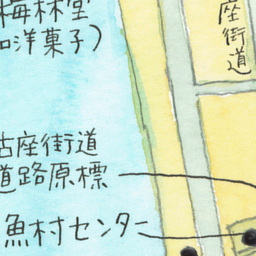 梅林堂
和洋菓子)
座街道
古座街道
道路原標
魚村センター